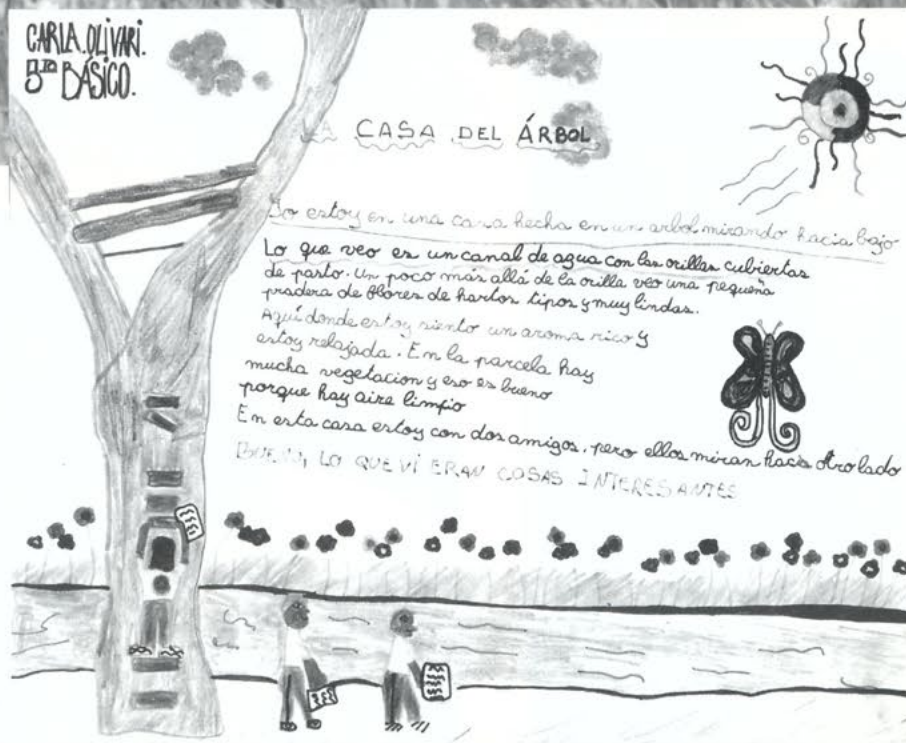 CARLA.OLIVARI.
5TO BÁSICO.
LA CASA DEL ÁRBOL
Yo estoy en una casa hecha en un arbol mirando hacia bajo
Lo que veo es un canal de agua con las orillas cubiertas
de pasto. Un poco más allá de la orilla veo una pequeña
pradera de flores de hartos tipos y muy lindas.
Aquí donde estoy siento un aroma rico y
estoy relajada. En la parcela hay
mucha vegetacion y eso es bueno
porque hay aire limpio
En esta casa estoy con dos amigos, pero ellos miran hacia otro lado
BUENO, LO QUE VÍ ERAN COSAS INTERESANTES